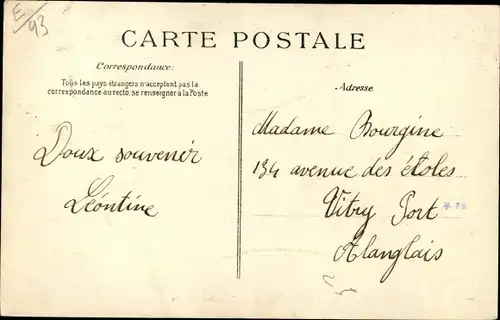 E/93
CARTE POSTALE
Correspondance:
Tous les pays étrangers n'acceptent pas la
correspondance au recto, se renseigner à la Poste
Doux souvenir
Léontine
Adresse
Madame Bourgine
134 avenue des étoles
Vitry Port
Alanglais